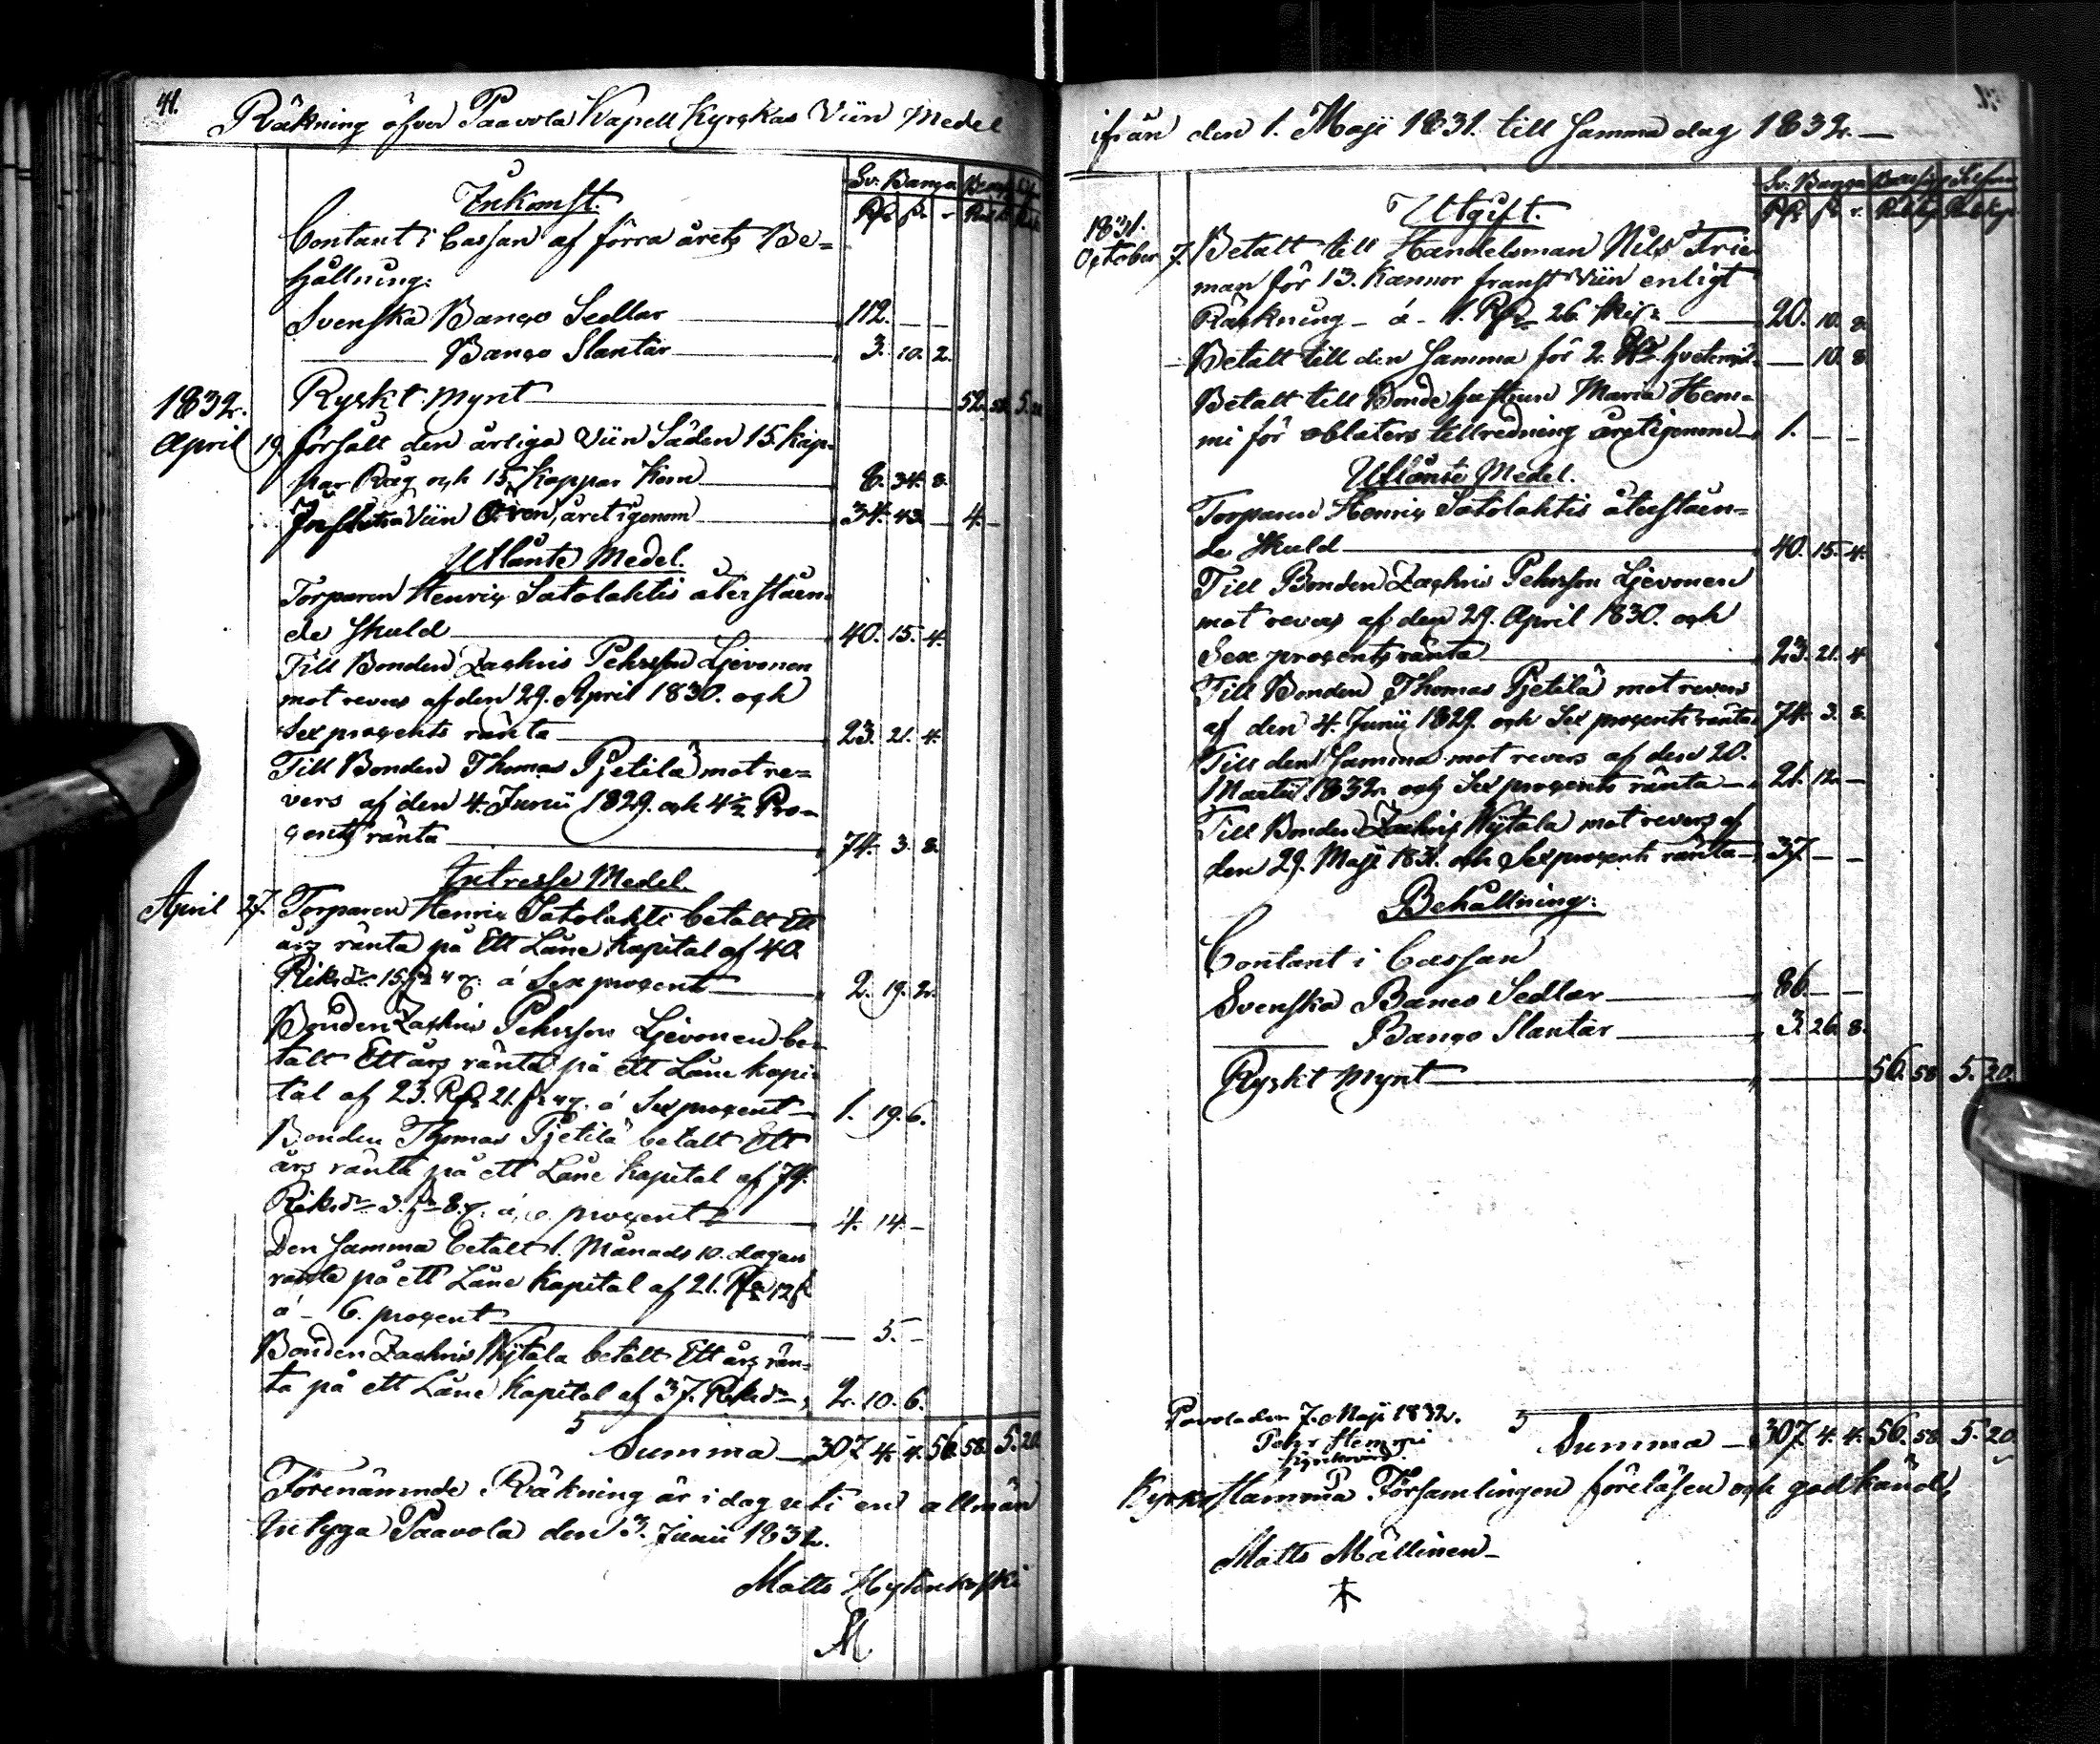 41.
Räkning öfver Paavola Kapell Kyrckas Viin Medel
Inkomst.
Sv. Banco
Rdr s. r.
Contant i Cassan af förra årets Be=
hållning:
Svenska Banco Sedlar 112. — —
— Banco Slantar 3. 10. 2.
1832. Ryskt Mynt — 52. 58. 5. 20
April 19 försålt den årliga Viin Säden 15. Kap-
par Råg och 15. Kappar Korn 8. 34. 8.
Viin Ören, året igenom 34. 43. — 4. —
Utlånte Medel.
Torparen Henric Satolahtis återståen-
de skuld 40. 15. 4.
Till Bonden Zachris Pehrsson Ljevonen
mot revers af den 29. April 1830. och
Sex procents ränta 23. 21. 4.
Till Bonden Thomas Pjetilä mot re=
vers af den 4. Junii 1829. och 4½ Pro-
cents ränta 74. 3. 8.
Intresse Medel.
April 27. Torparen Henric Satolahti betalt Ett
års ränta på Ett Låne Kapital af 40.
Riksdr 15 s 4 r. á Sex procent 2. 19. 2.
Bonden Zachris Pehrsson Ljevonen be-
talt Ett års ränta på ett Låne Kapi-
tal af 23. Rdr 21. s 4 r. á Sex procent 1. 19. 6.
Bonden Thomas Pjetilä betalt Ett
års ränta på ett Låne Kapital af 74.
Riksdr 3. s 8. r. á procent 4. 14. —
Den samma betalt 1. Månads 10. dagars
ränta på ett Låne Kapital af 21. Rdr 12 s
á — 6. procent — 5. —
Bonden Zachris Wjtala betalt Ett års rän-
ta på ett Låne Kapital af 37. Riksdr 2. 10. 6.
Summa 307. 4. 4. 56. 58. 5. 20.
Förenämnde Räkning är i dag uti en allmän
Intyga Paavola den 3. Junii 1832.
Matts
M
ifrån den 1. Maji 1831. till samma dag 1832. —
Utgift.
Sv. Banco
Rdr s. r.
1831.
October 7. Betalt till Handelsman Nils Frie-
man för 13. Kannor franst Viin enligt
Räckning — á — 1. Rdr 26. skis 20. 10. 8.
— Betalt till den samma för 2. hvetemjöl — 10. 8.
Betalt till Bonde hustrun Maria Hem-
mi för oblaters tillredning året igenom 1. — —
Utlånte Medel.
Torparen Henric Satolahtis återståen=
de skuld 40. 15. 4.
Till Bonden Zachris Pehrsson Ljevonen
mot revers af den 29. April 1830. och
Sex procents ränta 23. 21. 4
Till Bonden Thomas Pjetilä mot revers
af den 4. Junii 1829. och Sex procents ränta 74. 3. 8.
Till den samma mot revers af den 20.
Martii 1832. och Sex procents ränta 21. 12. —
Till Bonden Zachris Wjtala mot revers af
den 29. Maji 1831. och Sex procents ränta 37. — —
Behållning:
Contant i Cassan
Svenska Banco Sedlar 86. — —
— Banco Slantar 3. 26. 8.
Ryskt Mynt 56. 58 5. 20.
Pavola den 7. Maji 1832.
Pehr Hemmi
Kyrkovärd.
Summa 307. 4. 4. 56. 58. 5. 20
Kyrko stämma Församlingen föreläsen och godkänd,
Matts Mällinen